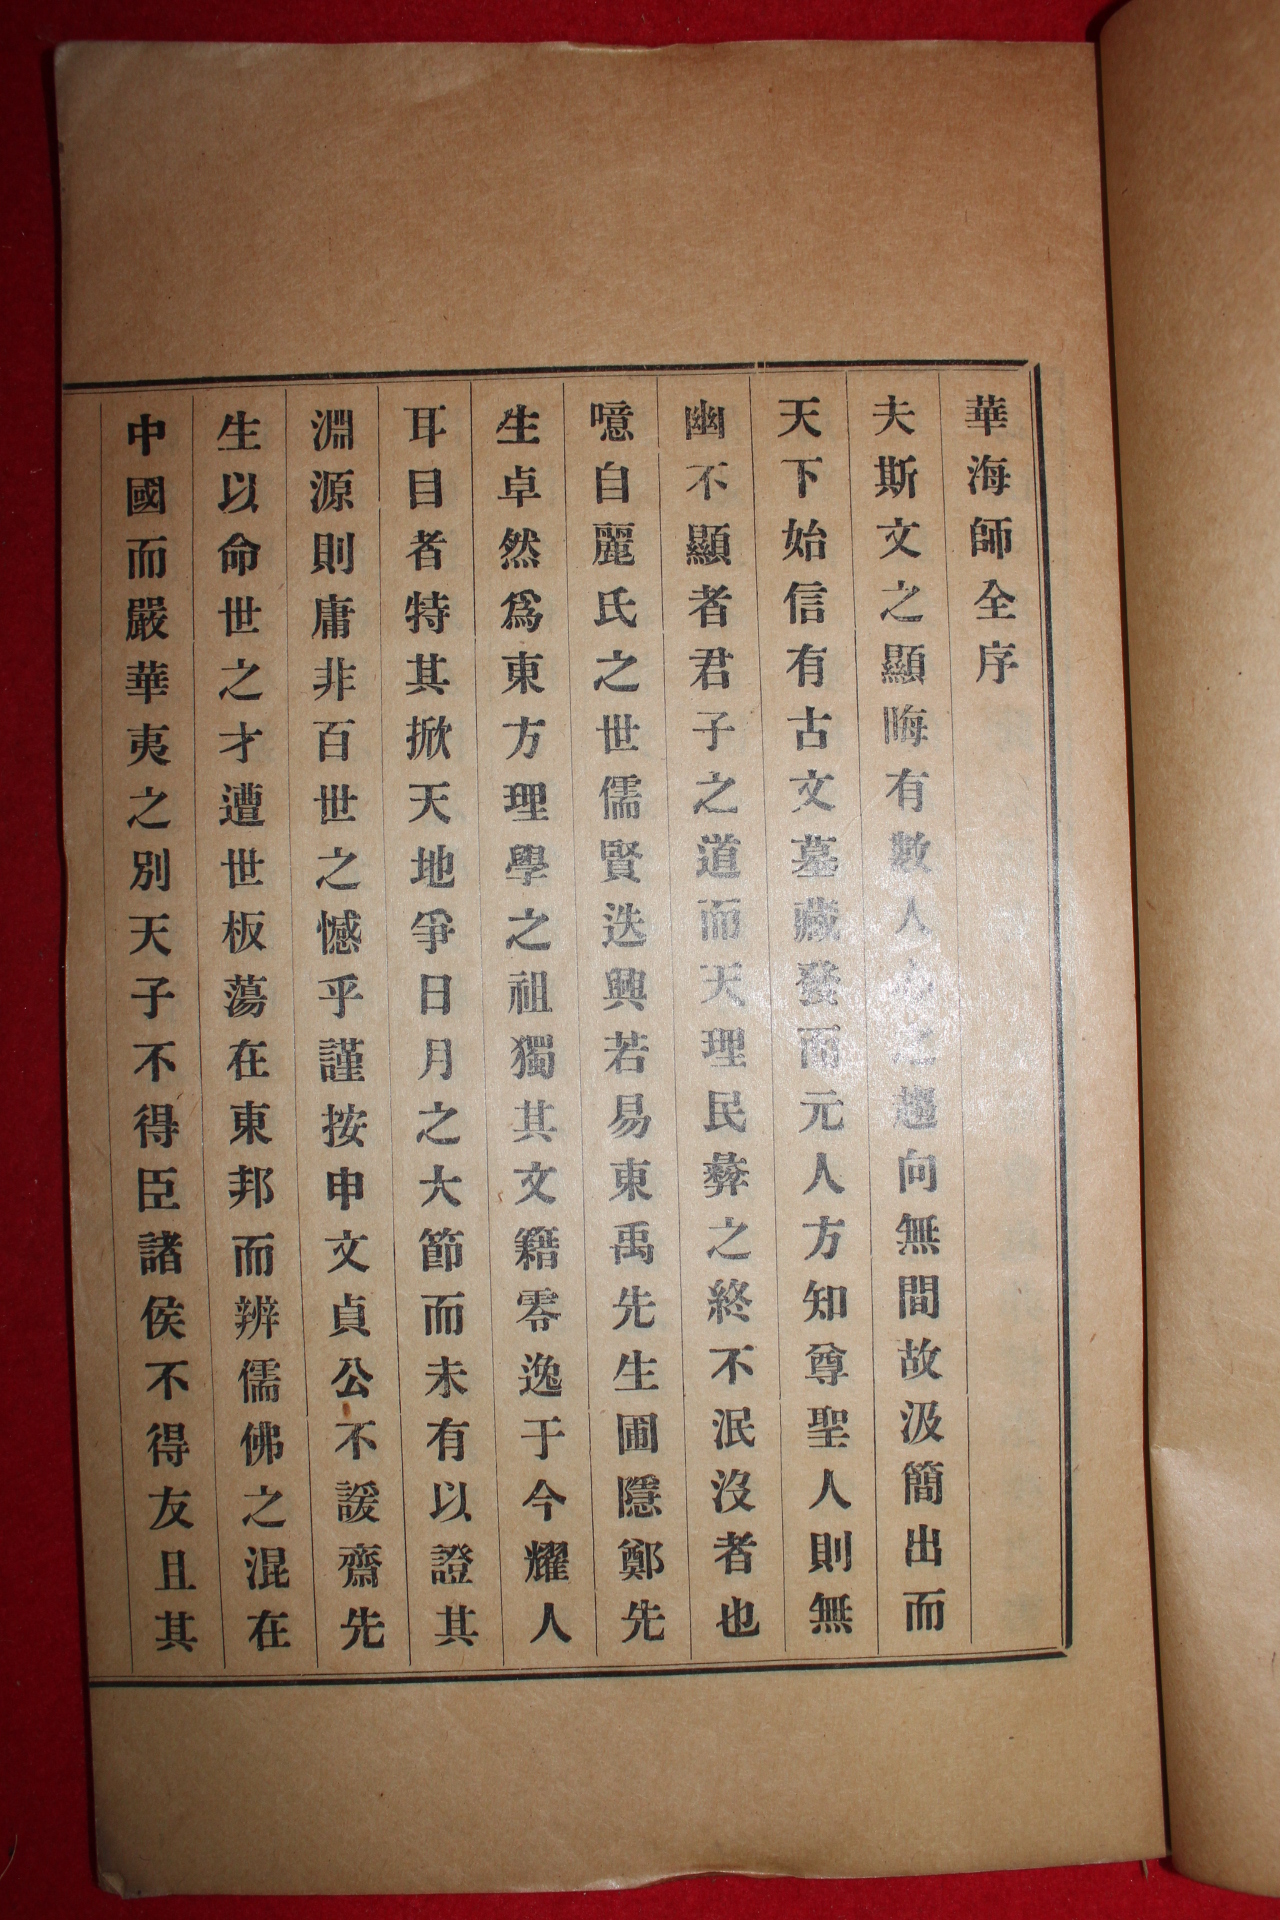 華海師全序
夫斯文之顯晦有數人心之趨向無間故汲簡出而
天下始信有古文墓藏發而元人方知尊聖人則無
幽不顯者君子之道而天理民彝之終不泯沒者也
噫自麗氏之世儒賢迭興若易東禹先生圃隱鄭先
生卓然爲東方理學之祖獨其文籍零逸于今耀人
耳目者特其掀天地爭日月之大節而未有以證其
淵源則庸非百世之憾乎謹按申文貞公不諼齋先
生以命世之才遭世板蕩在東邦而辨儒佛之混在
中國而嚴華夷之別天子不得臣諸侯不得友且其